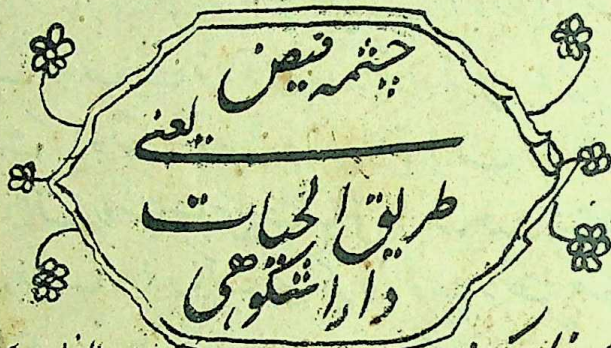 چشمہ فیض
یعنی
طریق الحیات
داراشکوهی